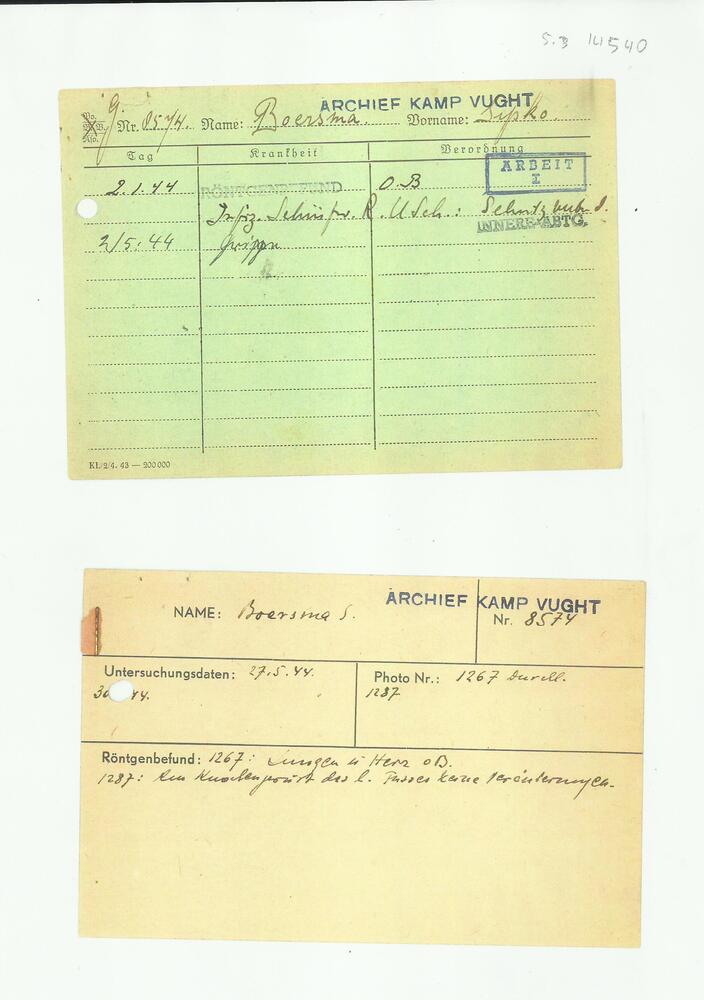 S.B 14540
ARCHIEF KAMP VUGHT
Nr. 8574. Name: Boersma. Vorname: Sipko.
Tag Krankheit Verordnung
ARBEIT
I
2.1.44 RÖNTGENBEFUND O.B
R. U Sch.:
INNERE ABTG.
2/5.44 Grippe
KL/2/4. 43 — 200000
ARCHIEF KAMP VUGHT
NAME: Boersma S. Nr. 8574
Untersuchungsdaten: 27.5.44. Photo Nr.: 1267 Durchl.
30 44. 1287
Röntgenbefund: 1267: Lungen u Herz oB.
1287: Am Knochengerüst des l. Fusses keine Veränderungen.